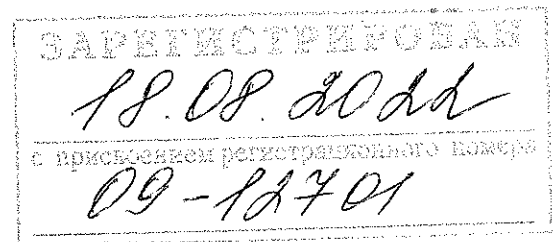 ЗАРЕГИСТРИРОВАН
18.08.2022
с присвоением регистрационного номера
09-12701